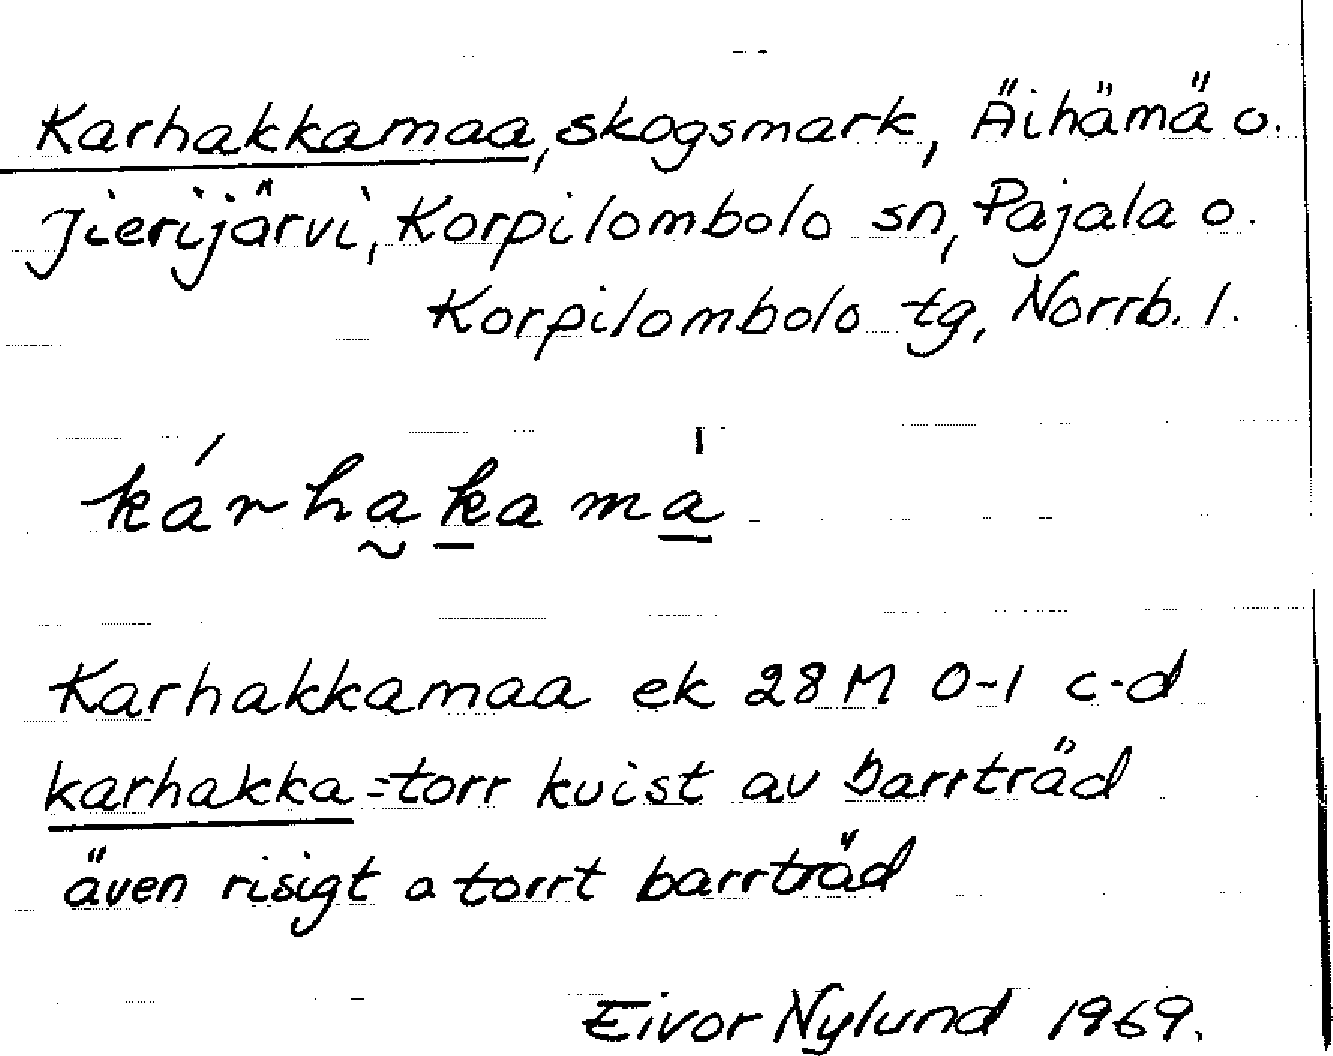 Karhakkamaa, skogsmark, Äihämä o.
Jierijärvi, Korpilombolo sn, Pajala o.
Korpilombolo tg, Norrb. l.
kárha̰ḵama̱̍
Karhakkamaa ek 28 M 0-1 c-d
karhakka = torr kvist av barrträd
även risigt o torrt barrträd
Eivor Nylund 1969.